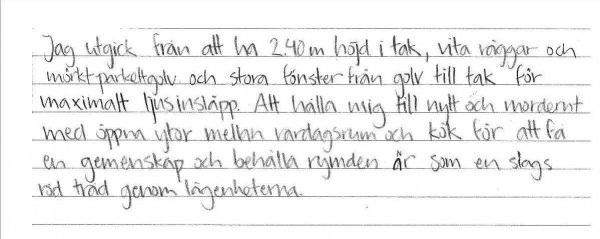 Jag utgick från att ha 2.40 m höjd i tak, vita väggar och
mörkt parkettgolv och stora fönster från golv till tak för
maximalt ljusinsläpp. Att hålla mig till nytt och mordernt
med öppna ytor mellan vardagsrum och kök för att få
en gemenskap och behålla rymden är som en slags
röd tråd genom lägenheterna.